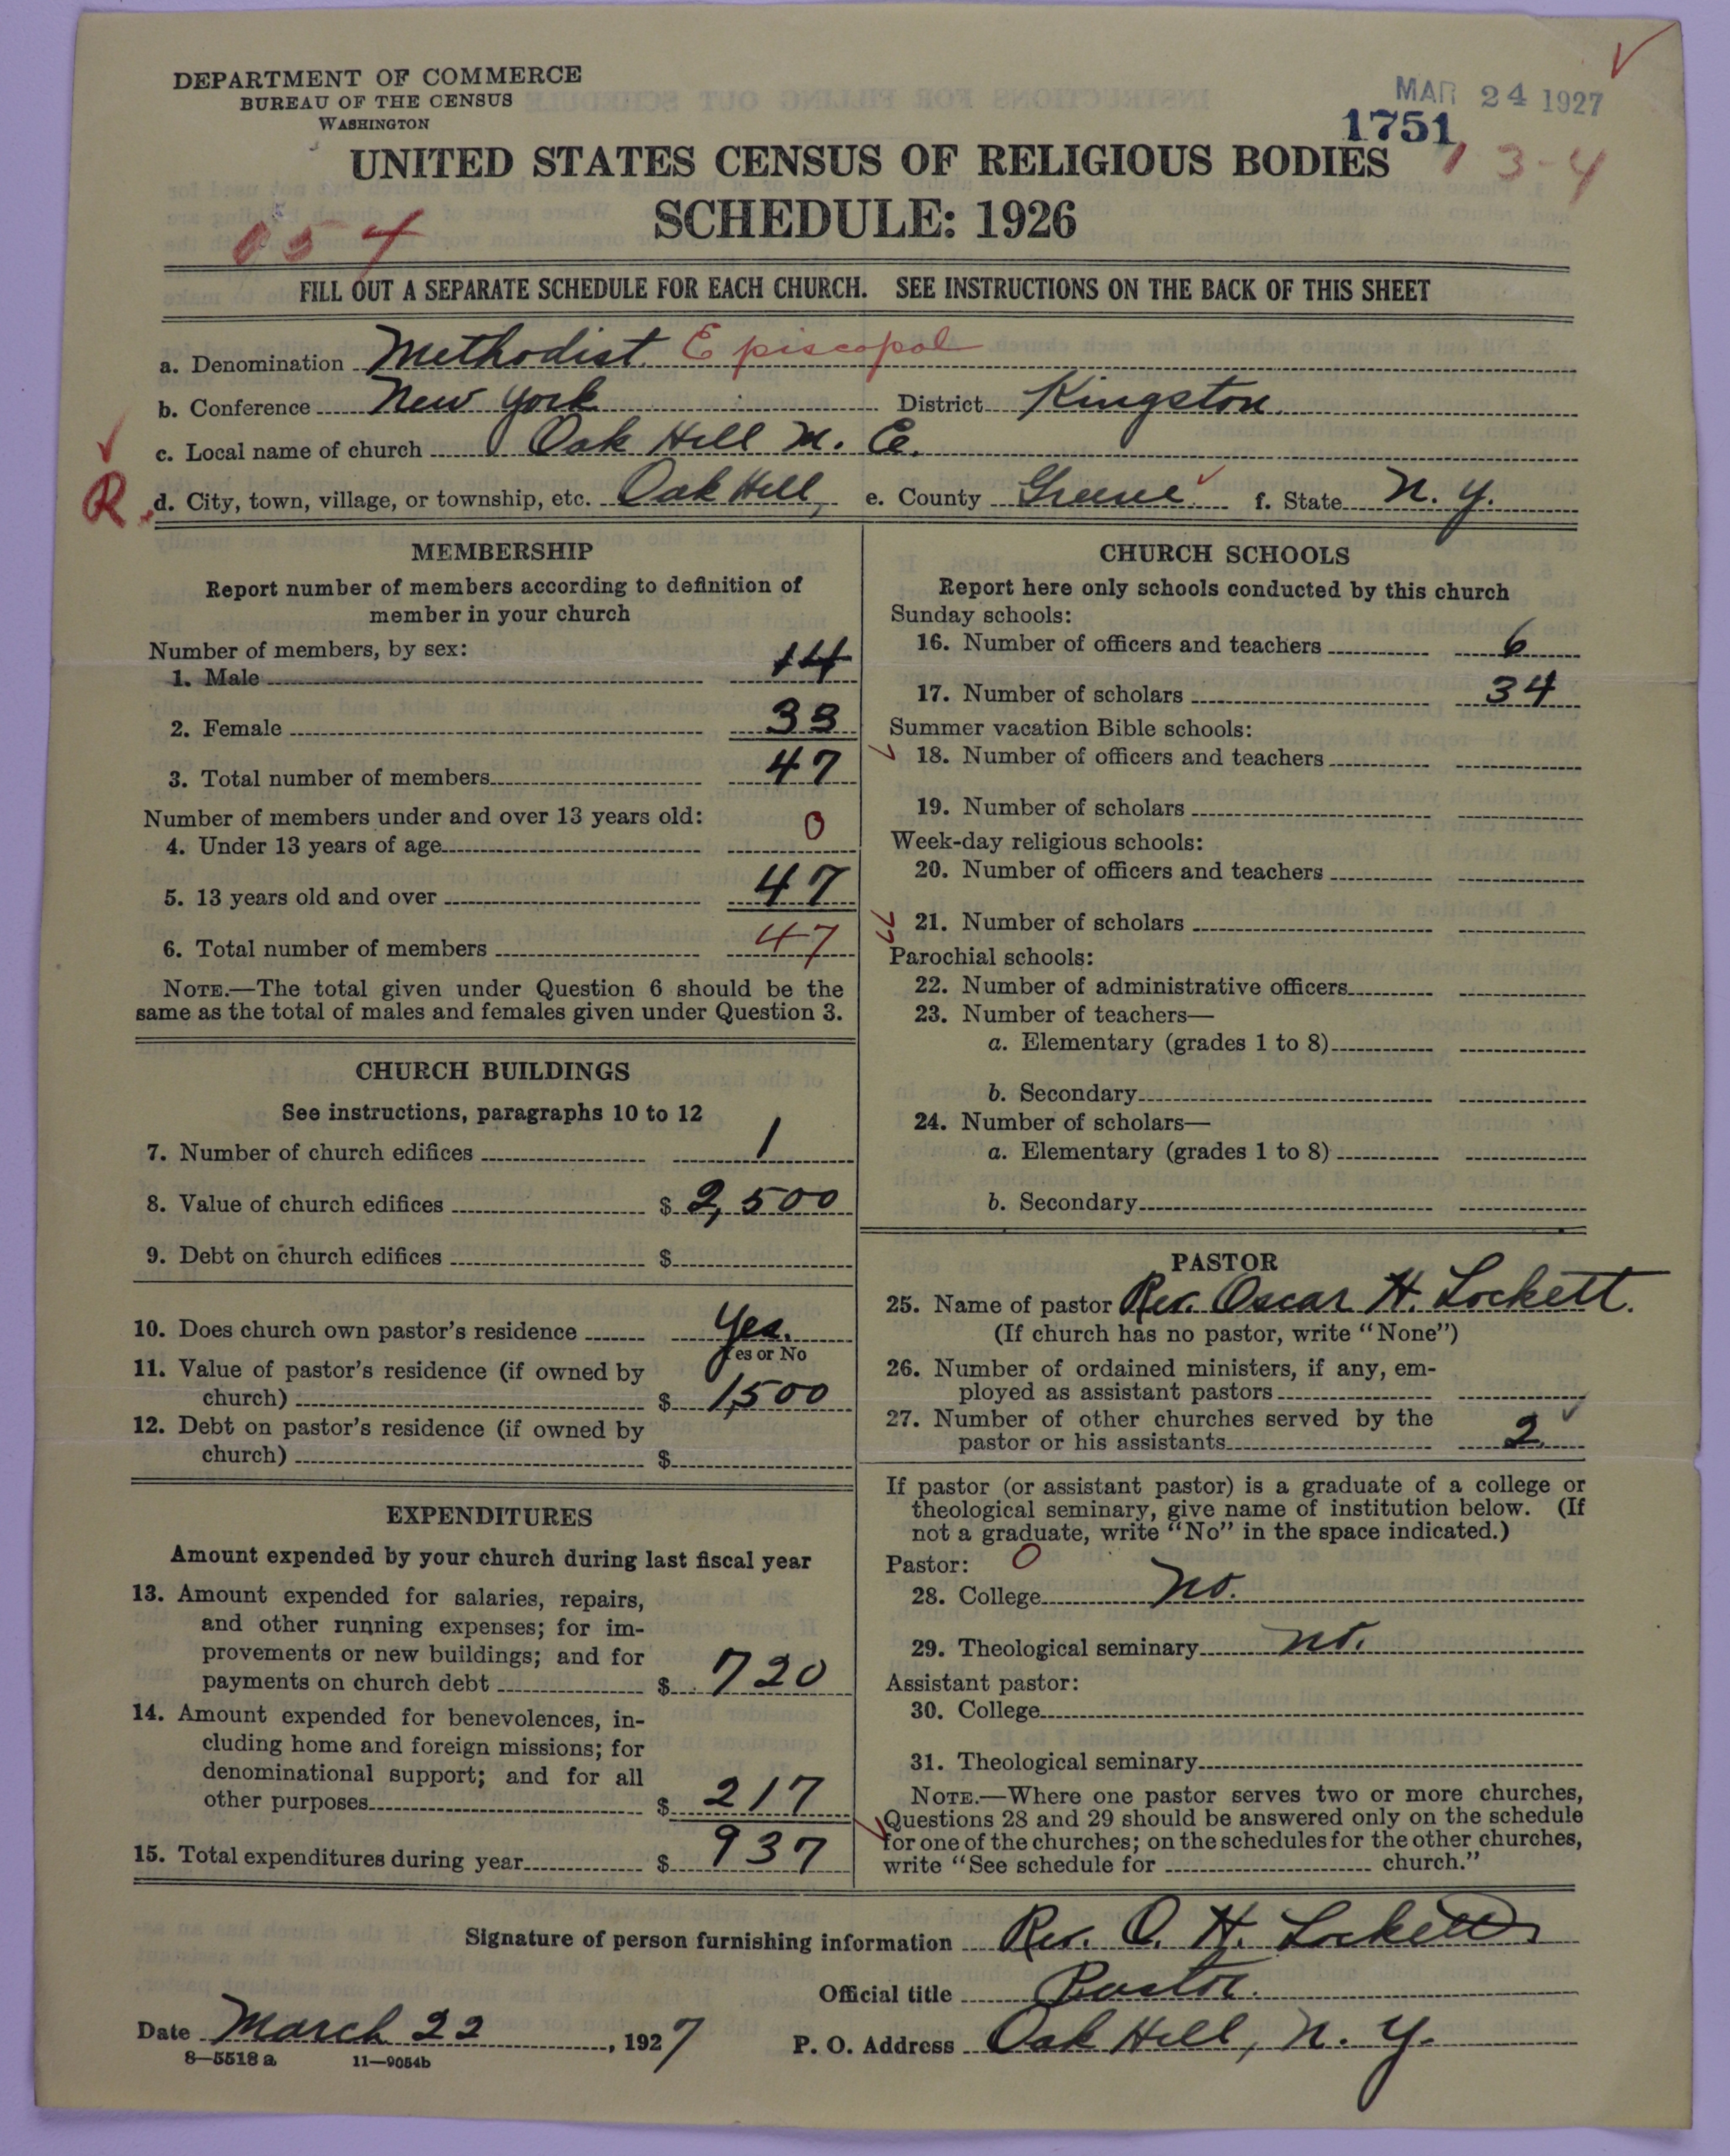 DEPARTMENT OF COMMERCE
BUREAU OF THE CENSUS
WASHINGTON
MAR 24 1927
1751
UNITED STATES CENSUS OF RELIGIOUS BODIES
1 3-4
SCHEDULE: 1926
054
FILL OUT A SEPARATE SCHEDULE FOR EACH CHURCH. SEE INSTRUCTIONS ON THE BACK OF THIS SHEET
a. Denomination Methodist Episcopal
b. Conference New York District Kingston
c. Local name of church Oak Hill M. E.
R d. City, town, village, or township, etc. Oak Hill, e. County Greene f. State N. Y.
MEMBERSHIP
Report number of members according to definition of
member in your church
Number of members, by sex:
1. Male 14
2. Female 33
3. Total number of members 47
Number of members under and over 13 years old:
4. Under 13 years of age 0
5. 13 years old and over 47
6. Total number of members 47
NOTE.—The total given under Question 6 should be the
same as the total of males and females given under Question 3.
CHURCH BUILDINGS
See instructions, paragraphs 10 to 12
7. Number of church edifices 1
8. Value of church edifices $ 2,500
9. Debt on church edifices $
10. Does church own pastor's residence Yes.
Yes or No
11. Value of pastor's residence (if owned by
church) $ 1,500
12. Debt on pastor's residence (if owned by
church) $
EXPENDITURES
Amount expended by your church during last fiscal year
13. Amount expended for salaries, repairs,
and other running expenses; for im-
provements or new buildings; and for
payments on church debt $ 720
14. Amount expended for benevolences, in-
cluding home and foreign missions; for
denominational support; and for all
other purposes $ 217
15. Total expenditures during year $ 937
CHURCH SCHOOLS
Report here only schools conducted by this church
Sunday schools:
16. Number of officers and teachers 6
17. Number of scholars 34
Summer vacation Bible schools:
18. Number of officers and teachers
19. Number of scholars
Week-day religious schools:
20. Number of officers and teachers
21. Number of scholars
Parochial schools:
22. Number of administrative officers
23. Number of teachers—
a. Elementary (grades 1 to 8)
b. Secondary
24. Number of scholars—
a. Elementary (grades 1 to 8)
b. Secondary
PASTOR
25. Name of pastor Rev. Oscar H. Lockett.
(If church has no pastor, write "None")
26. Number of ordained ministers, if any, em-
ployed as assistant pastors
27. Number of other churches served by the
pastor or his assistants 2
If pastor (or assistant pastor) is a graduate of a college or
theological seminary, give name of institution below. (If
not a graduate, write "No" in the space indicated.)
Pastor: 0
28. College No.
29. Theological seminary No.
Assistant pastor:
30. College
31. Theological seminary
NOTE.—Where one pastor serves two or more churches,
Questions 28 and 29 should be answered only on the schedule
for one of the churches; on the schedules for the other churches,
write "See schedule for church."
Signature of person furnishing information Rev. O. H. Lockett
Official title Pastor.
Date March 22, 1927 P. O. Address Oak Hill, N. Y.
8—5518 a 11—9054b